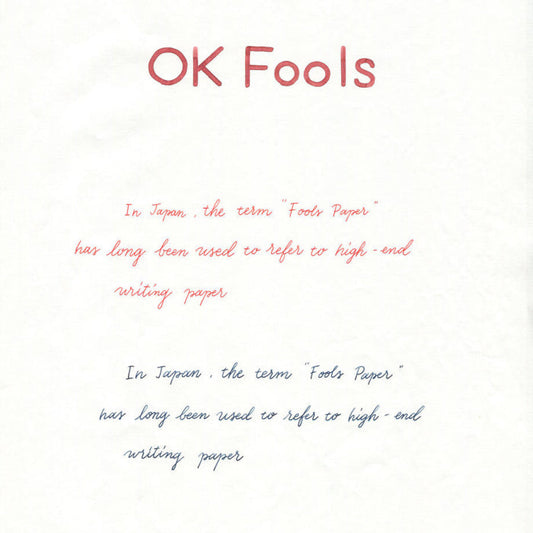 OK Fools
In Japan, the term "Fools Paper"
has long been used to refer to high-end
writing paper
In Japan, the term "Fools Paper"
has long been used to refer to high-end
writing paper